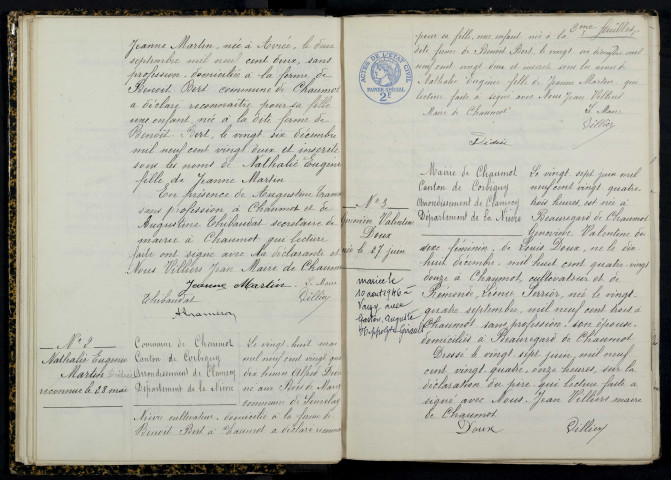 Jeanne Martin, née à Avrée, le onze
septembre mil neuf cent onze, sans
profession, domiciliée à la ferme de
Benoit Bert commune de Chaumot
a déclaré reconnaitre pour sa fille
une enfant, née à la dite ferme de
Benoit Bert, le vingt six décembre
mil neuf cent vingt deux et inscrite
sous les noms de Nathalie Eugénie
fille de Jeanne Martin
En présence de Augustine
sans profession à Chaumot et de
Augustine Thibaudat secrétaire de
mairie à Chaumot qui lecture
faite ont signé avec la déclarante et
Nous Villiers Jean Maire de Chaumot
Jeanne Martin Le Maire
Thibaudat Villiers
N° 2
Nathalie Eugénie
Martin
reconnue le 28 mai
Commune de Chaumot
Canton de Corbigny
Arrondissement de Clamecy
Département de la Nièvre
Le vingt huit mai
mil neuf cent vingt quatre
commune de
Nièvre cultivateur, domicilié à la ferme de
Benoit Bert à Chaumot a déclaré reconnaitre
3me feuillet
pour sa fille, une enfant née à la
dite ferme de Benoit Bert, le vingt six décembre mil
neuf cent vingt deux et inscrite sous les noms de
Nathalie Eugénie fille de Jeanne Martin, qui
lecture faite a signé avec Nous Jean Villiers
Maire de Chaumot Le Maire
Villiers
ACTES DE L'ÉTAT CIVIL
PAPIER SPÉCIAL
2F
N° 3
Geneviève Valentine
Doux
née le 27 juin
mariée le
10 août 1946 à
avec
Gaston, Auguste
Hippolyte
Mairie de Chaumot
Canton de Corbigny
Arrondissement de Clamecy
Département de la Nièvre
Le vingt sept juin mil
neuf cent vingt quatre
heures, est née à
Beauregard de Chaumot
Geneviève Valentine du
sexe féminin, de Louis Doux, né le dix
huit décembre mil huit cent quatre-vingt
douze à Chaumot, cultivateur et de
Léonce née le vingt-
quatre septembre, mil neuf cent huit à
Chaumot sans profession, son épouse
domiciliés à Beauregard de Chaumot
Dressé le vingt sept juin, mil neuf
cent vingt quatre, onze heures, sur la
déclaration du père, qui lecture faite a
signé avec Nous, Jean Villiers maire
de Chaumot
Doux Villiers